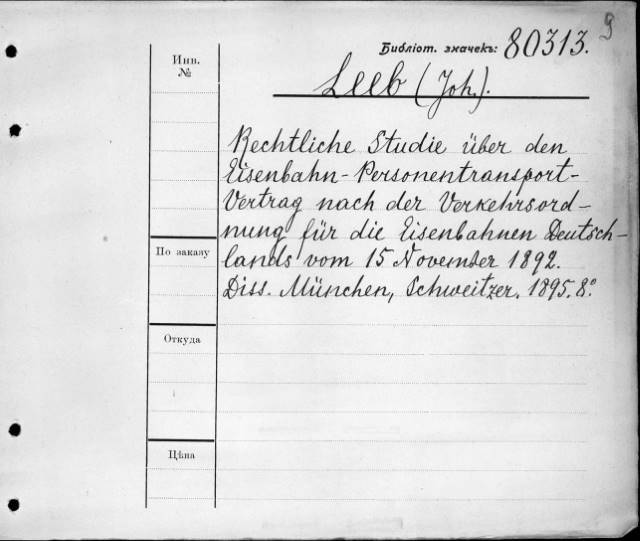 9
Библіот. значекъ: 80313.
Инв.
№
Leeb (Joh.).
Rechtliche Studie über den
Eisenbahn-Personentransport-
Vertrag nach der Verkehrsord-
nung für die Eisenbahnen Deutsch-
По заказу
lands vom 15 November 1892.
Diss. München, Schweitzer. 1895. 8º
Откуда
Цѣна